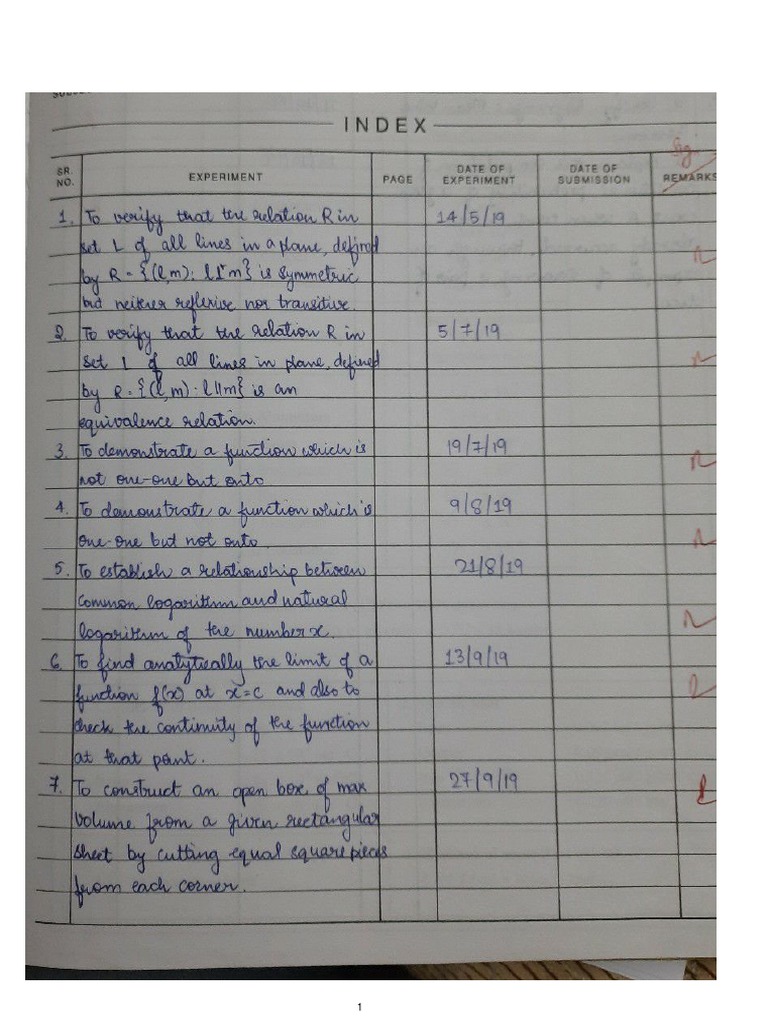 INDEX
SR. NO. EXPERIMENT PAGE DATE OF EXPERIMENT DATE OF SUBMISSION REMARKS
1. To verify that the relation R in 14/5/19
set L of all lines in a plane, defined
by R = {(l,m): l⊥m} is symmetric
but neither reflexive nor transitive.
2. To verify that the relation R in 5/7/19
set L of all lines in plane, defined
by R = {(l,m): l||m} is an
equivalence relation.
3. To demonstrate a function which is 19/7/19
not one-one but onto
4. To demonstrate a function which is 9/8/19
one-one but not onto.
5. To establish a relationship between 21/8/19
common logarithm and natural
logarithm of the number x.
6. To find analytically the limit of a 13/9/19
function f(x) at x=c and also to
check the continuity of the function
at that point.
7. To construct an open box of max 27/9/19
volume from a given rectangular
sheet by cutting equal square pieces
from each corner.
1